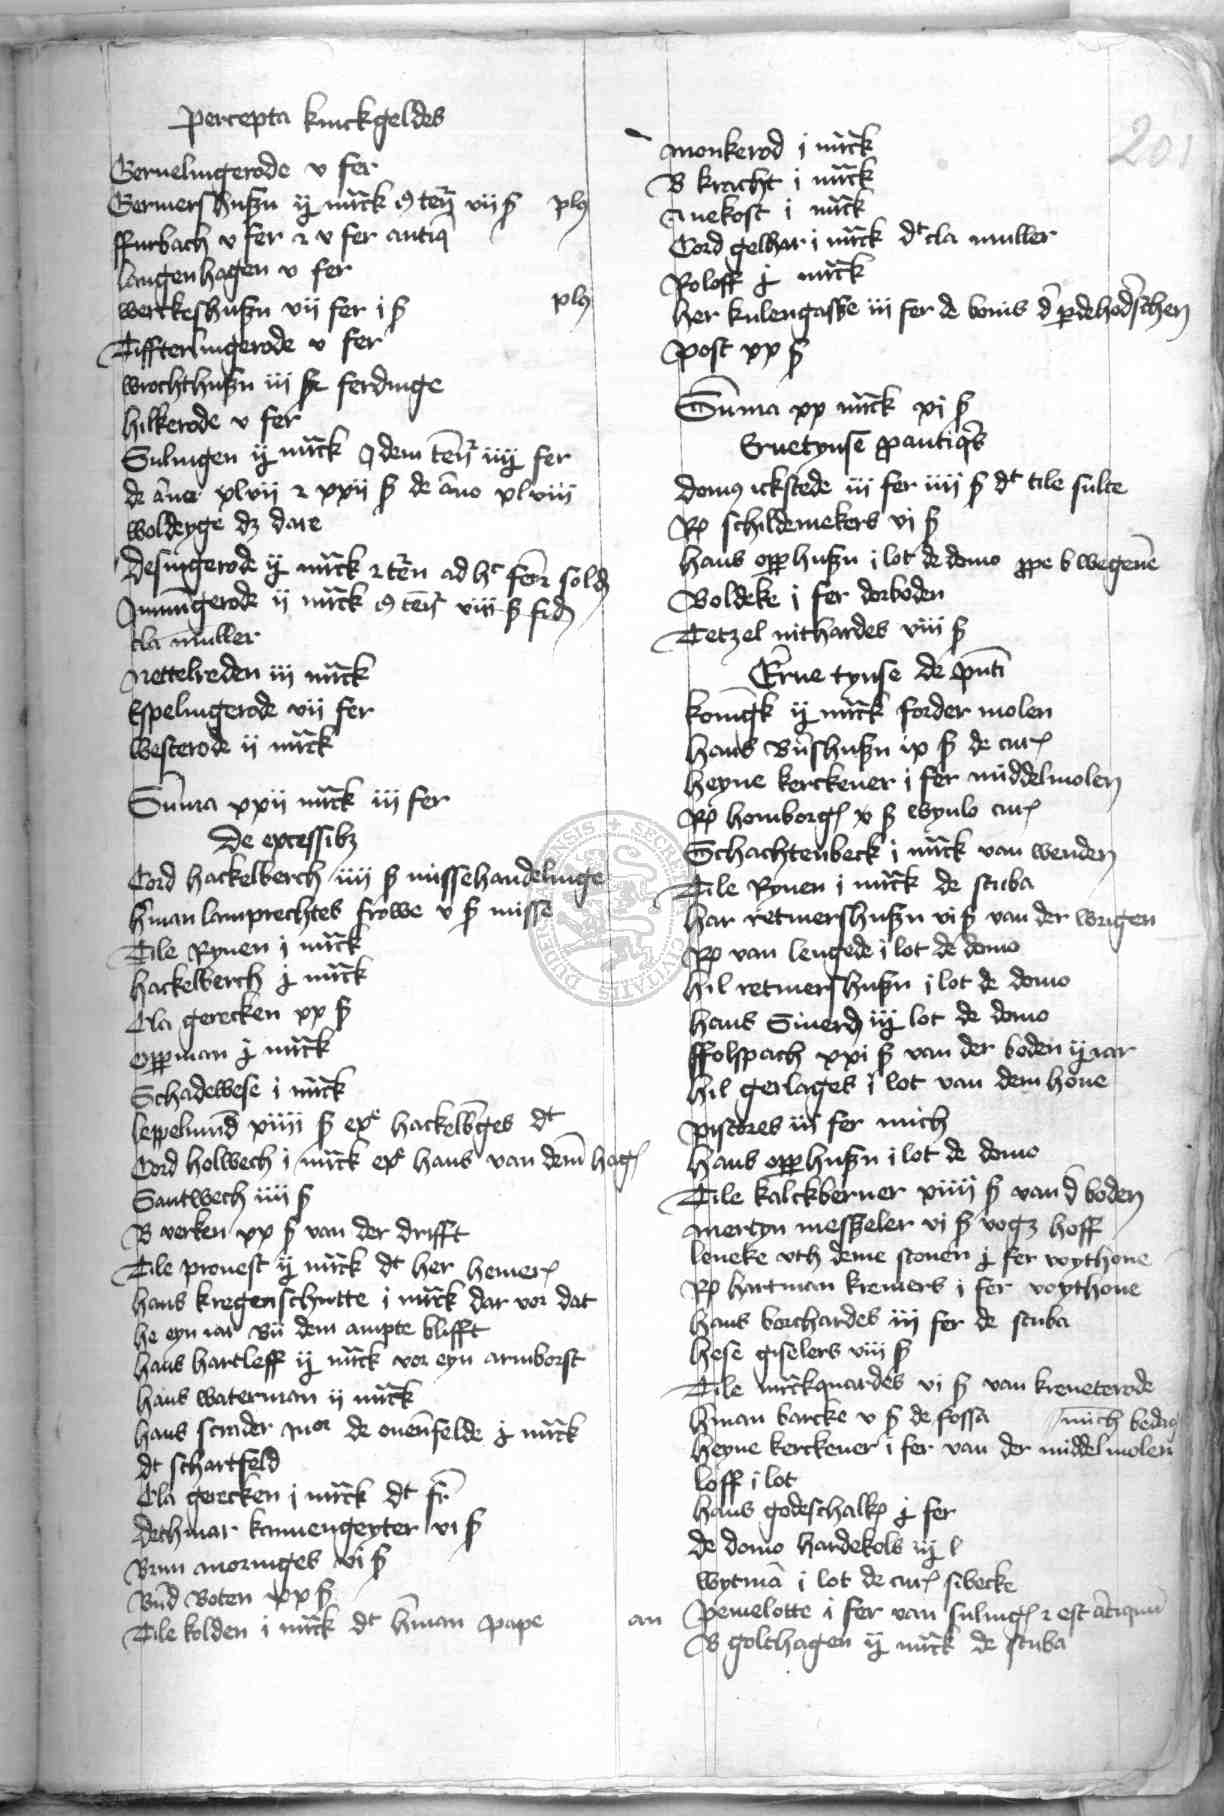 percepta kuickgeldes
Geruelingerode v fer
Germershusen ij mrck 9 ten vii ß plus
ffurbach v fer 2 v fer antiq
langenhagen v fer
werckeshusen vii fer i ß plus
Tiffterlingerode v fer
wrochthusen iii ferdinge
hilkerode v fer
Sulingen ij mrck Idem iiij fer
de xlvii 2 xxii ß de ano xlviii
woldeyge dz dare
Desingerode ij mrck 2 ad hc sold
Immingerode ij mrck 9 viii ß
cla muller
Nettelreden iii mrck
Espelingerode vii fer
westerode ij mrck
Suma xxii mrck iii fer
De excessibz
Cord hackelberch iiii ß missehandelinge
hman lamprechtes frowe v ß misse
Tile Rynen i mrck
hackelberch j mrck
Cla gerecken xx ß
oppman j mrck
Schadewese i mrck
leppelmud xiiii ß exc hackelbges dt
Cord holwech i mrck exc hans van dem hag
Santwech iiii ß
B verken xx ß van der drifft
Tile prouest ij mrck dt her hemer
hans kregenschutte i mrck dar vor dat
he eyn iar bii dem ampte blifft
hans hartleff ij mrck vor eyn armborst
hans waterman ij mrck
hans scrader de ouenfelde j mrck
dt schartfeld
Cla gerecken i mrck dt fr
dethmar kannengeyter vi ß
Brun moringes vi ß
Bud Boten xx ß
Tile kolden i mrck dt hman pape
201
monkerod i mrck
B kracht i mrck
Anekost i mrck
Cord gelhar i mrck dt cla muller
Roloff j mrck
her kulengasse iii fer de bonis
post xx ß
Suma xx mrck xi ß
Eruetynse
domus ickstede iii fer iiii ß dt tile sulte
Rp schildemekers vi ß
hans opphusen i lot de domo wegene
Boldeke i fer dorboden
Tetzel nithardes viii ß
Erue tynse de pnti
konigk ij mrck forder molen
hans Bushusen ix ß de cur
heyne kerckener i fer middelmolen
Rp homborg x ß cur
Schachtenbeck i mrck van wenden
Tile Rynen i mrck de stuba
har retmershusen vi ß van der worigen
Rp van lengede i lot de domo
hil retmershusen i lot de domo
hans Siuerd iij lot de domo
ffolspach xxi ß van der boden ij iar
hil gerlages i lot van dem houe
pistores iii fer mich
hans opphusen i lot de domo
Tile kalckberner xiiii ß van d boden
mertyn messeler vi ß hoff
leneke vth deme stouen j fer voythoue
Rp hartman kremers i fer voythoue
hans borchardes iii fer de stuba
hese giselers viii ß
Tile mrckquardes vi ß van kreueterode
hman barcke v ß de fossa mich bedag
heyne kerckener i fer van der middelmolen
loff i lot
hans godeschalk j fer
de domo hardekols iij l
wytman i lot de cur sibecke
an pemelotte i fer van suling 2 est antiquu
B golthagen ij mrck de stuba
SECRETUM CIVITATIS DUDERSTADENSIS